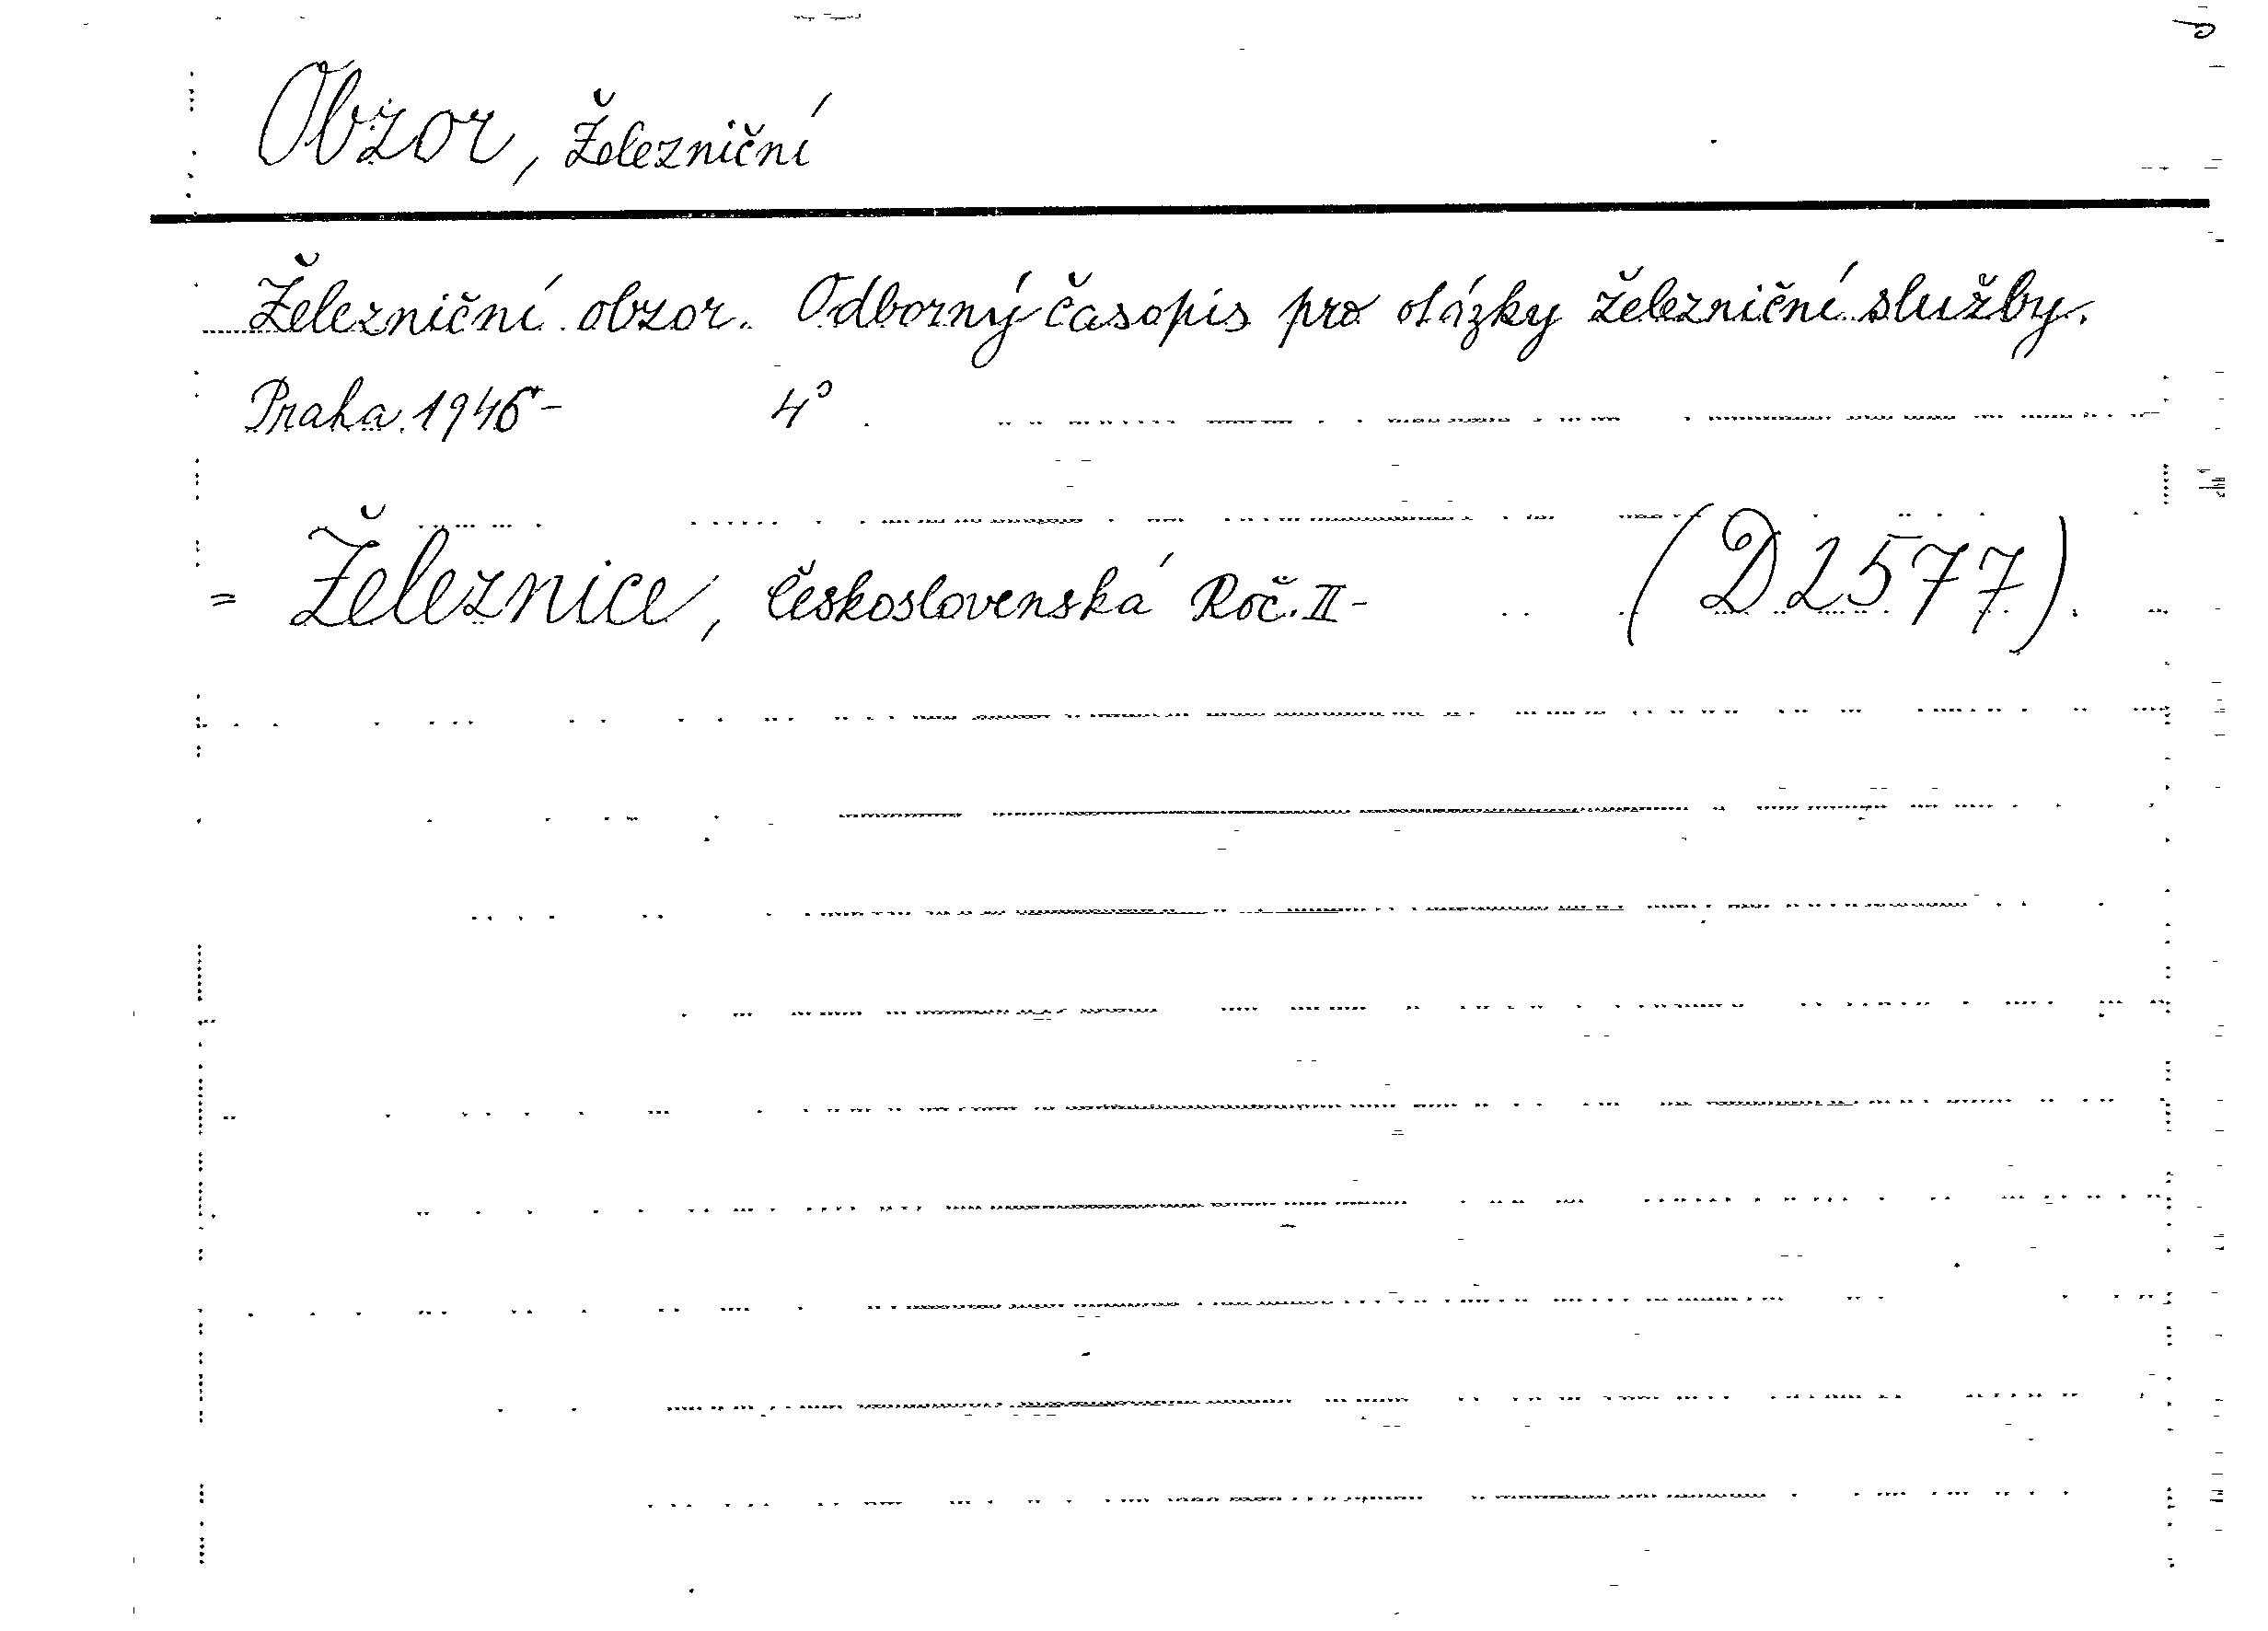 Obzor, železniční
Železniční obzor. Odborný časopis pro otázky železniční služby.
Praha 1946- 4°
= Železnice, Československá Roč. II- (D 2577).